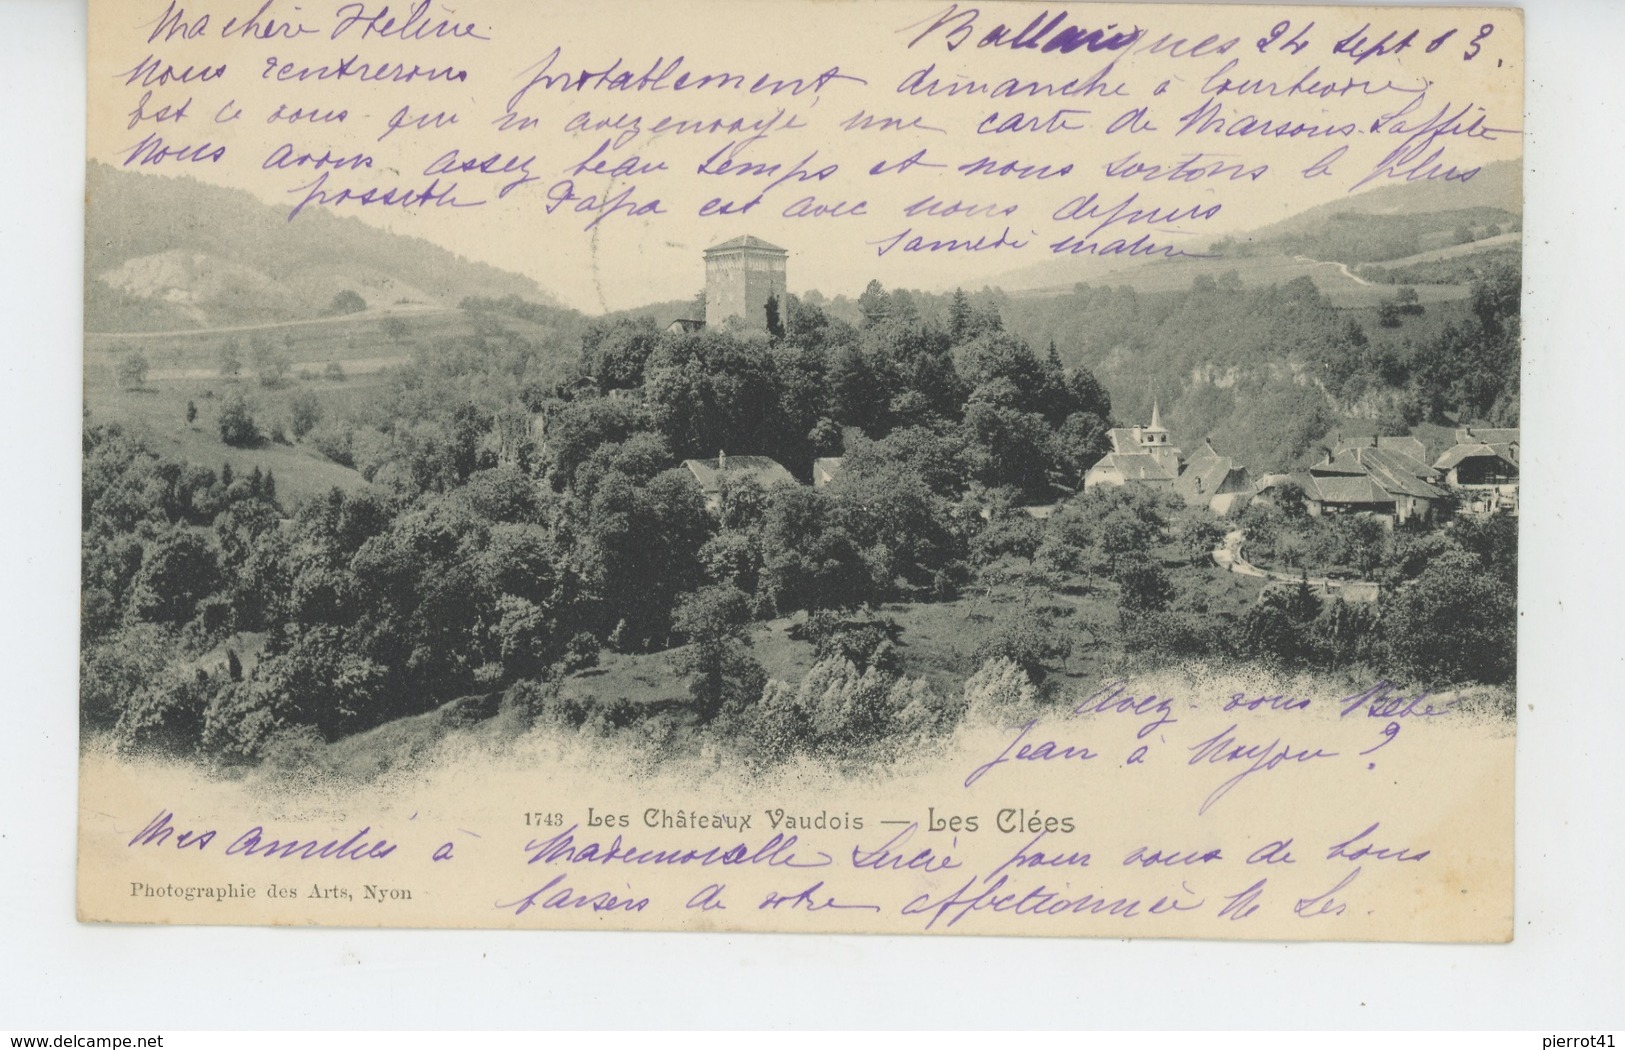 Ma chère Hélène
Ballaigues 24 Sept 03.
Nous rentrerons probablement dimanche à Courtevoie
Est ce vous qui m avez envoyé une carte de Maisons-Laffite
Nous avons assez beau temps et nous sortons le plus
possible Papa est avec nous depuis
samedi matin
Avez-vous Bébé
Jean à Noyon ?
1743 Les Châteaux Vaudois — Les Clées
Mes amitiés à Mademoiselle Lucie pour vous de bons
Photographie des Arts, Nyon
baisers de votre affectionnée
Delcampe.net
pierrot41